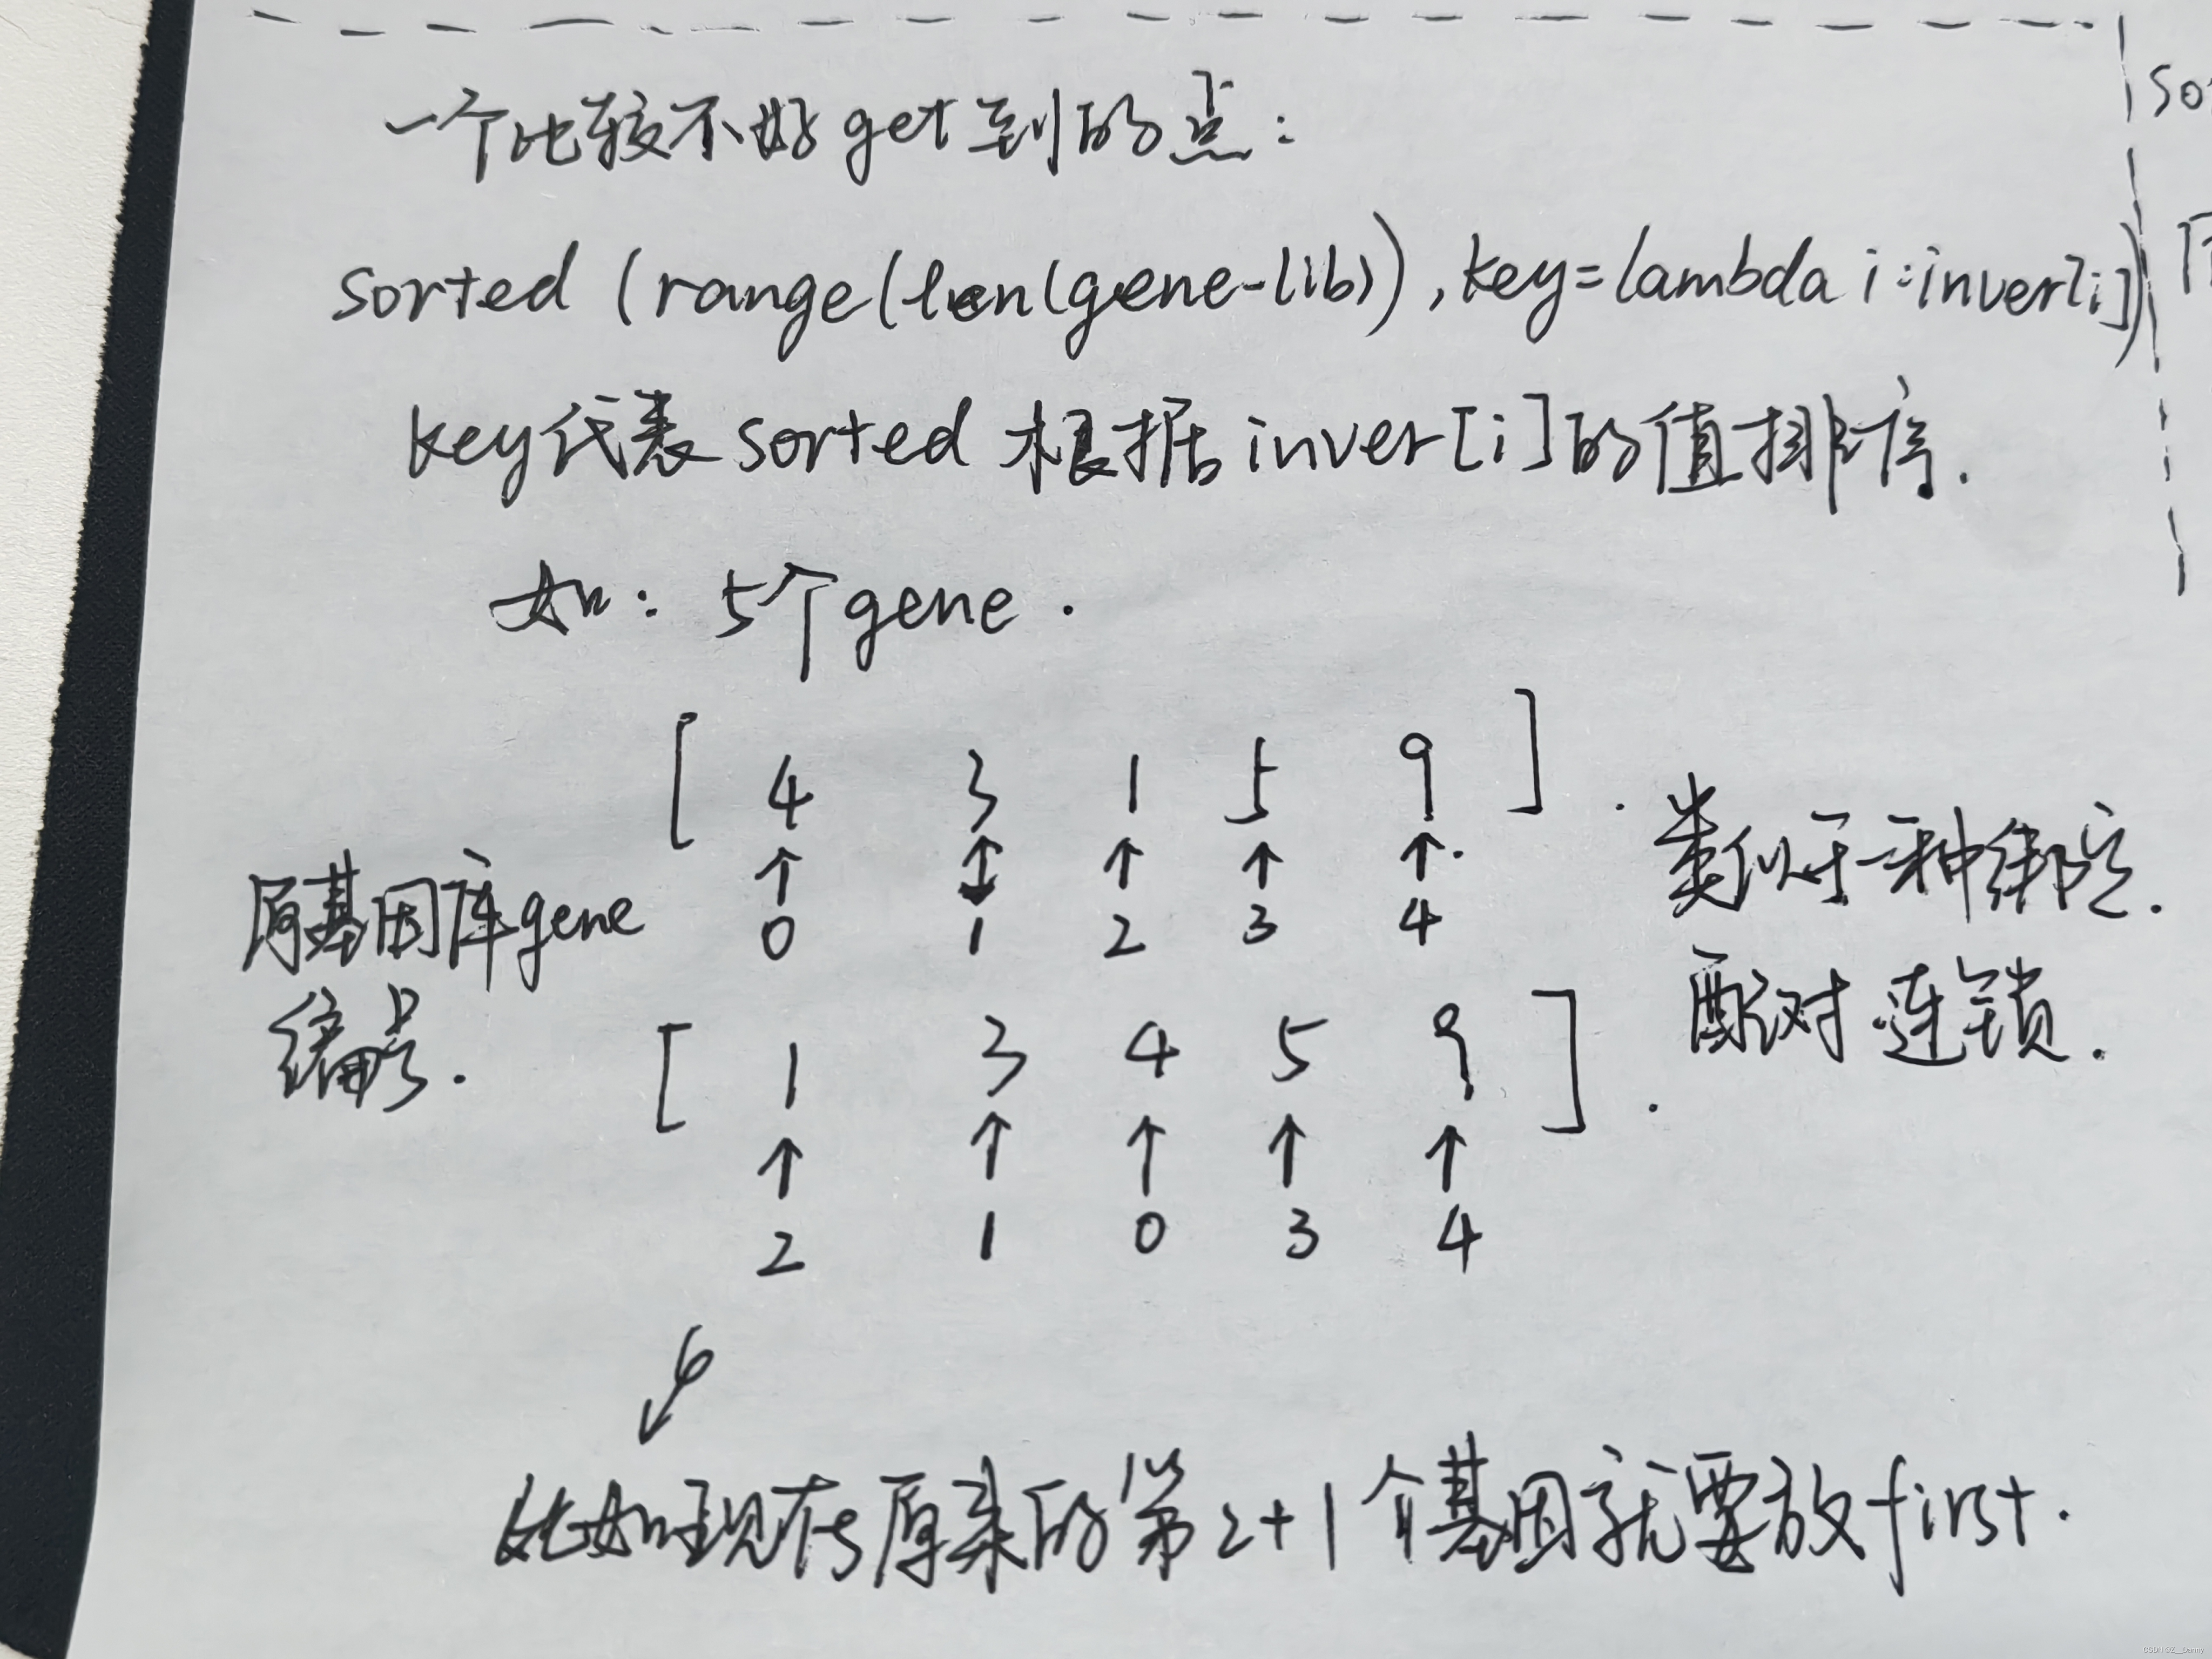 一个比较不好get到的点:
sorted (range(len(gene-lib)),key=lambda i:inver[i])
key代表 sorted 根据inver[i]的值排序.
如: 5个gene.
[ 4 3 1 5 9 ].
↑ ↕ ↑ ↑ ↑.
原基因库gene 0 1 2 3 4
编号.
类似于一种绑定.
配对 连锁.
[ 1 3 4 5 9 ].
↑ ↑ ↑ ↑ ↑
2 1 0 3 4
比如现在原来的第2+1个基因就要放first.
so
CSDN @Z__Donny